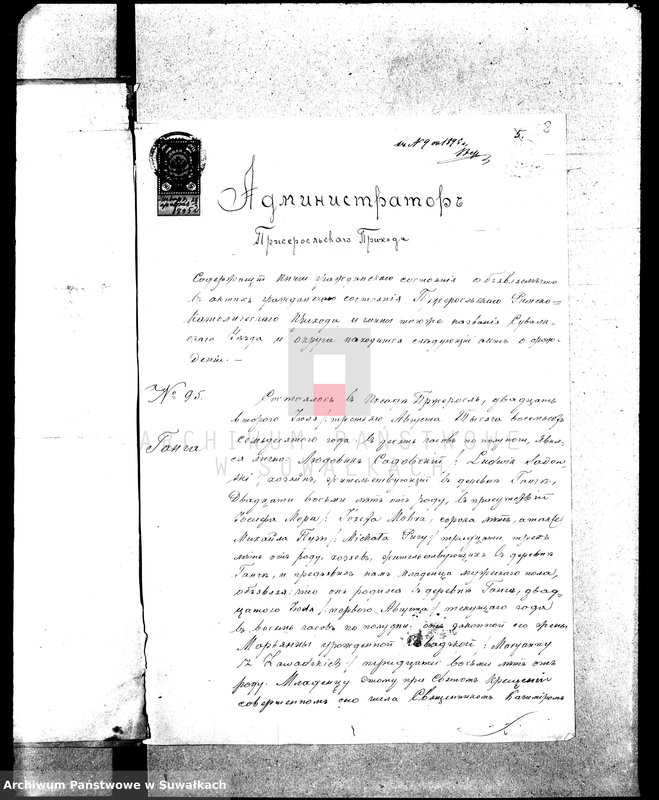 къ № 9 за 1895 г.
5.
2
1895
Администраторъ
Пржеросльскаго Прихода
Содержащій книги гражданскаго состоянія объявляетъ что
въ актахъ гражданскаго состоянія Пржеросльскаго Римско-
католическаго Прихода и гмины того же названія Сувалк-
скаго Уѣзда и округа находится слѣдующій актъ о рож-
деніи. —
№ 95.
Ганча
Состоялось въ Посадѣ Пржеросль, двадцать
втораго Іюля / третьяго Августа тысяча восемьсотъ
семьдесятаго года въ десять часовъ по полуночи, явил-
ся лично: Людовикъ Садовскій / Ludwik Sadow-
ski / хозяинъ, жительствующій въ деревнѣ Ганча,
двадцати восьми лѣтъ отъ роду, въ присутствіи
Іосифа / Józefa сорока лѣтъ, а также
Михаила / Michała / тридцати трехъ
лѣтъ отъ роду, хозяевъ, жительствующихъ въ деревнѣ
Ганча, и предъявилъ намъ младенца мужескаго пола,
объявляя: что онъ родился въ деревнѣ Ганча, двад-
цатаго Іюля / перваго Августа / текущаго года
въ восемь часовъ по полудни, отъ законной его жены
Марьянны урожденной Завадзкой / Maryanny
z Zawadzkich / тридцати восьми лѣтъ отъ
роду. Младенцу этому при Святомъ Крещеніи
совершенномъ сего числа Священникомъ Казиміромъ
ARCHIWUM PAŃSTWOWE
W SUWAŁKACH
Archiwum Państwowe w Suwałkach